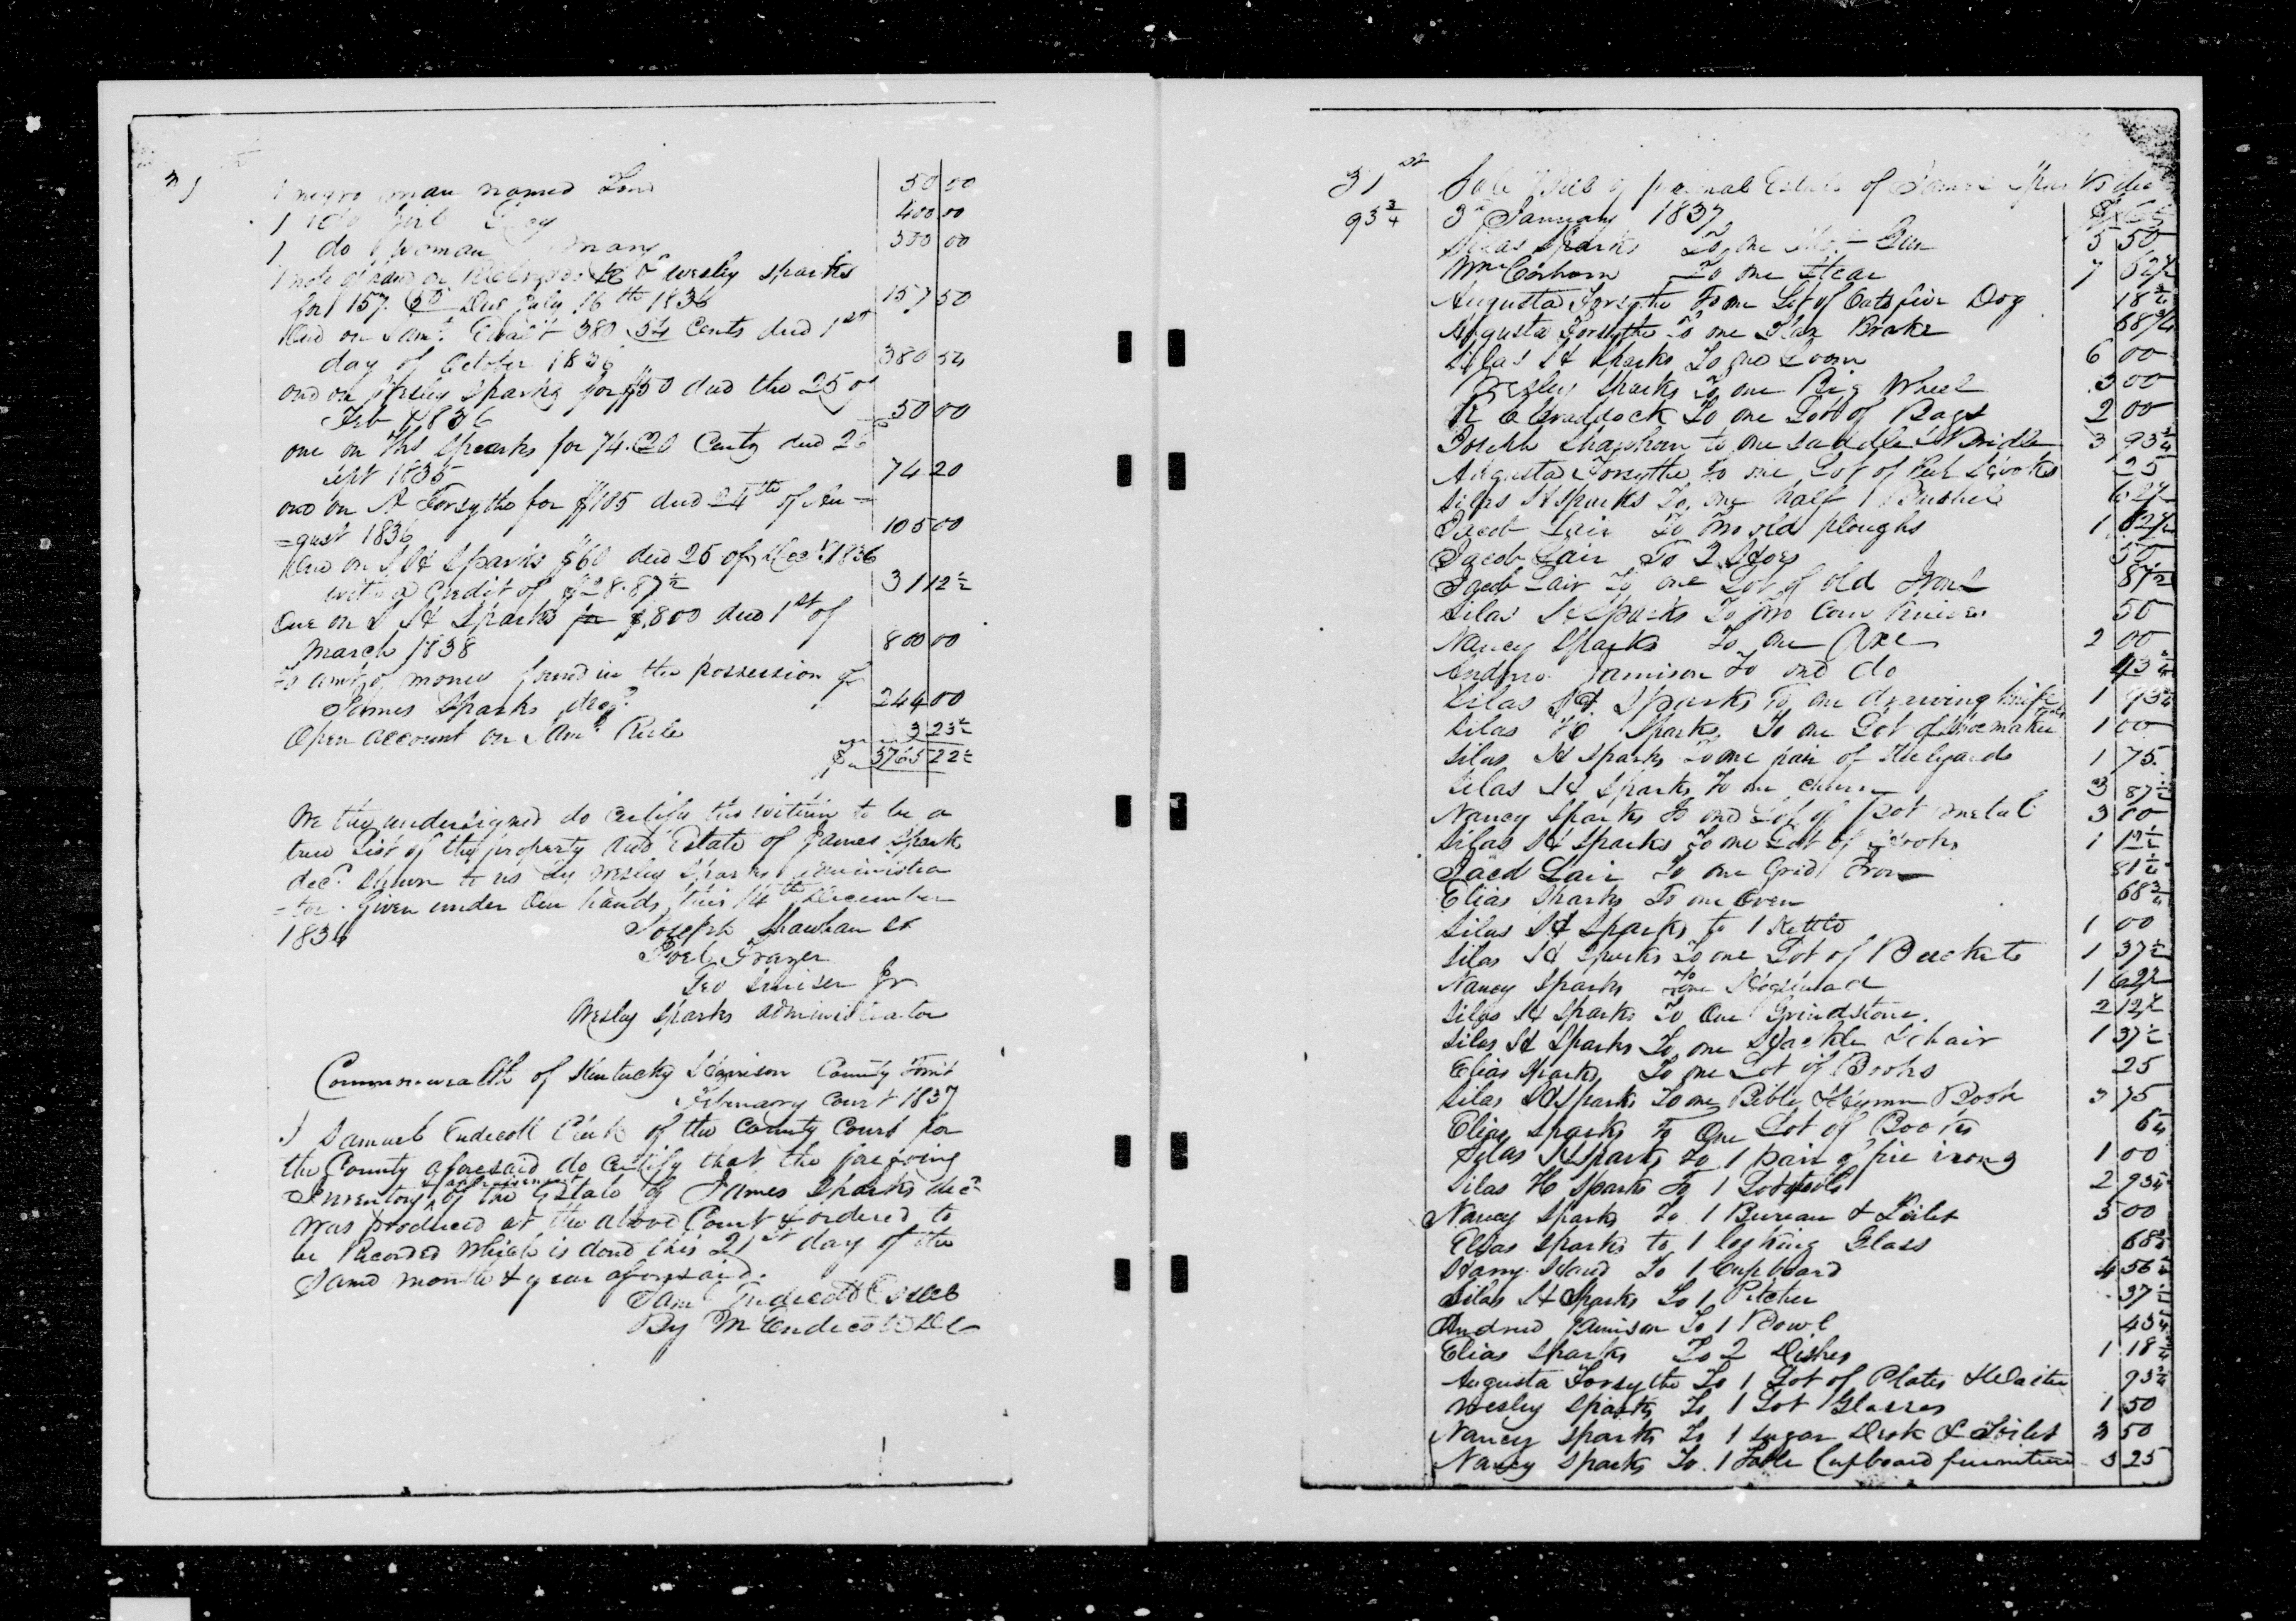 31
1 negro man named Tom 50 00
1 do girl 400 00
1 do woman Mary 550 00
1 note of hand on & Wesley Sparks
for 157. 50 Due July 16th 1836 157 50
one on Saml. 380 54 Cents due 1st
day of October 1836 380 54
one on Wesley Sparks for $50 due the 25 of
Feb 1836 50 00
one on Ths Sparks for 74.20 Cents due 26
Sept 1835 74 20
one on A Forsythe for $105 due 24th of Au=
=gust 1836 105 00
One on S H Sparks $60 due 25 of Dec. 1836
with a Credit of $28.87½ 31 12½
One on S H Sparks for $.800 due 1st of
March 1838 800 00
To amt. of money found in the possession of
James Sparks decd. 244 00
Open account on Saml. Rule 3 23½
$ 3765 22½
We the undersigned do certify the within to be a
true List of the property and Estate of James Sparks
decd. shown to us by Wesley Sparks administra
=tor. Given under Our hands this 14th December
1836 Joseph Shawhan sr
Joel Frazer
Geo Smiser Jr
Wesley Sparks administrator
Commonwealth of Kentucky Harrison County Towit
February Court 1837
I Samuel Endicott Clerk of the County Court for
the County aforesaid do certify that the foregoing
Inventory & appraisement of the Estate of James Sparks decd.
was produced at the above Court & ordered to
be Recorded which is done this 21st day of the
same month & year aforesaid.
Saml Endicott
By M Endicott DC
31st Sale Bill of personal Estate of James Sparks decd
93¾ 3d January 1837 $ Cts
Silas Sparks To one Gun 5 50
Wm Corhorn To one 7 52½
Augusta Forsythe To one Lot of Oats fire Dog 18¾
Augusta Forsythe To one Flax Brake 68¾
Silas H Sparks To one Loom 6 00
Wesley Sparks To one Big Wheel 3 00
R C Craddock To one Lot of Bags 2 00
Joseph Shawhan to one saddle & Bridle 3 93¾
Augusta Forsythe To one Lot of 25
Silas H Sparks To one half Bushel 62½
Jacob Lair To two old ploughs 1 62½
Jacob Lair To 2 Hoes 50
Jacob Lair To one Lot of old Irons 87½
Silas H Sparks To two Corn Knives 50
Nancy Sparks To one Axe 2 00
Andrew Jamison To one do 43¾
Silas H. Sparks To one drawing knife 1 93¾
Silas H Sparks To one Lot of shoemaker tools 1 00
Silas H Sparks To one pair of Stilyards 1 75
Silas H Sparks To one churn 3 87½
Nancy Sparks To one Lot of pot metal 3 00
Silas H Sparks To one Lot of Crocks 1 12½
Jacob Lair To one Grid Iron 81¼
Elias Sparks To one Oven 68¾
Silas H Sparks to 1 Kettle 1 00
Silas H Sparks To one Lot of Buckets 1 37½
Nancy Sparks To one Hogshead 1 62½
Silas H Sparks To One Grindstone. 2 12½
Silas H Sparks To one Hackle & chair 1 37½
Elias Sparks To one Lot of Books 25
Silas H Sparks To one Bible & Hymn Book 3 75
Elias Sparks To One Lot of Books 6¼
Silas H Sparks To 1 pair of fire irons 1 00
Silas H Sparks To 1 Lot 2 93¾
Nancy Sparks To 1 Bureau & Toilet 5 00
Elias Sparks to 1 looking Glass 68¾
Harry Hand To 1 Cupboard 4 56¼
Silas H Sparks To 1 Pitcher 37½
Andrew Jamison To 1 Bowl 43¾
Elias Sparks To 2 Dishes 1 18¾
Augusta Forsythe To 1 Lot of Plates & Waiter 93¾
Wesley Sparks To 1 Lot Glasses 1 50
Nancy Sparks To 1 sugar Desk & Toilet 3 50
Nancy Sparks To. 1 Table Cupboard furniture 3 25